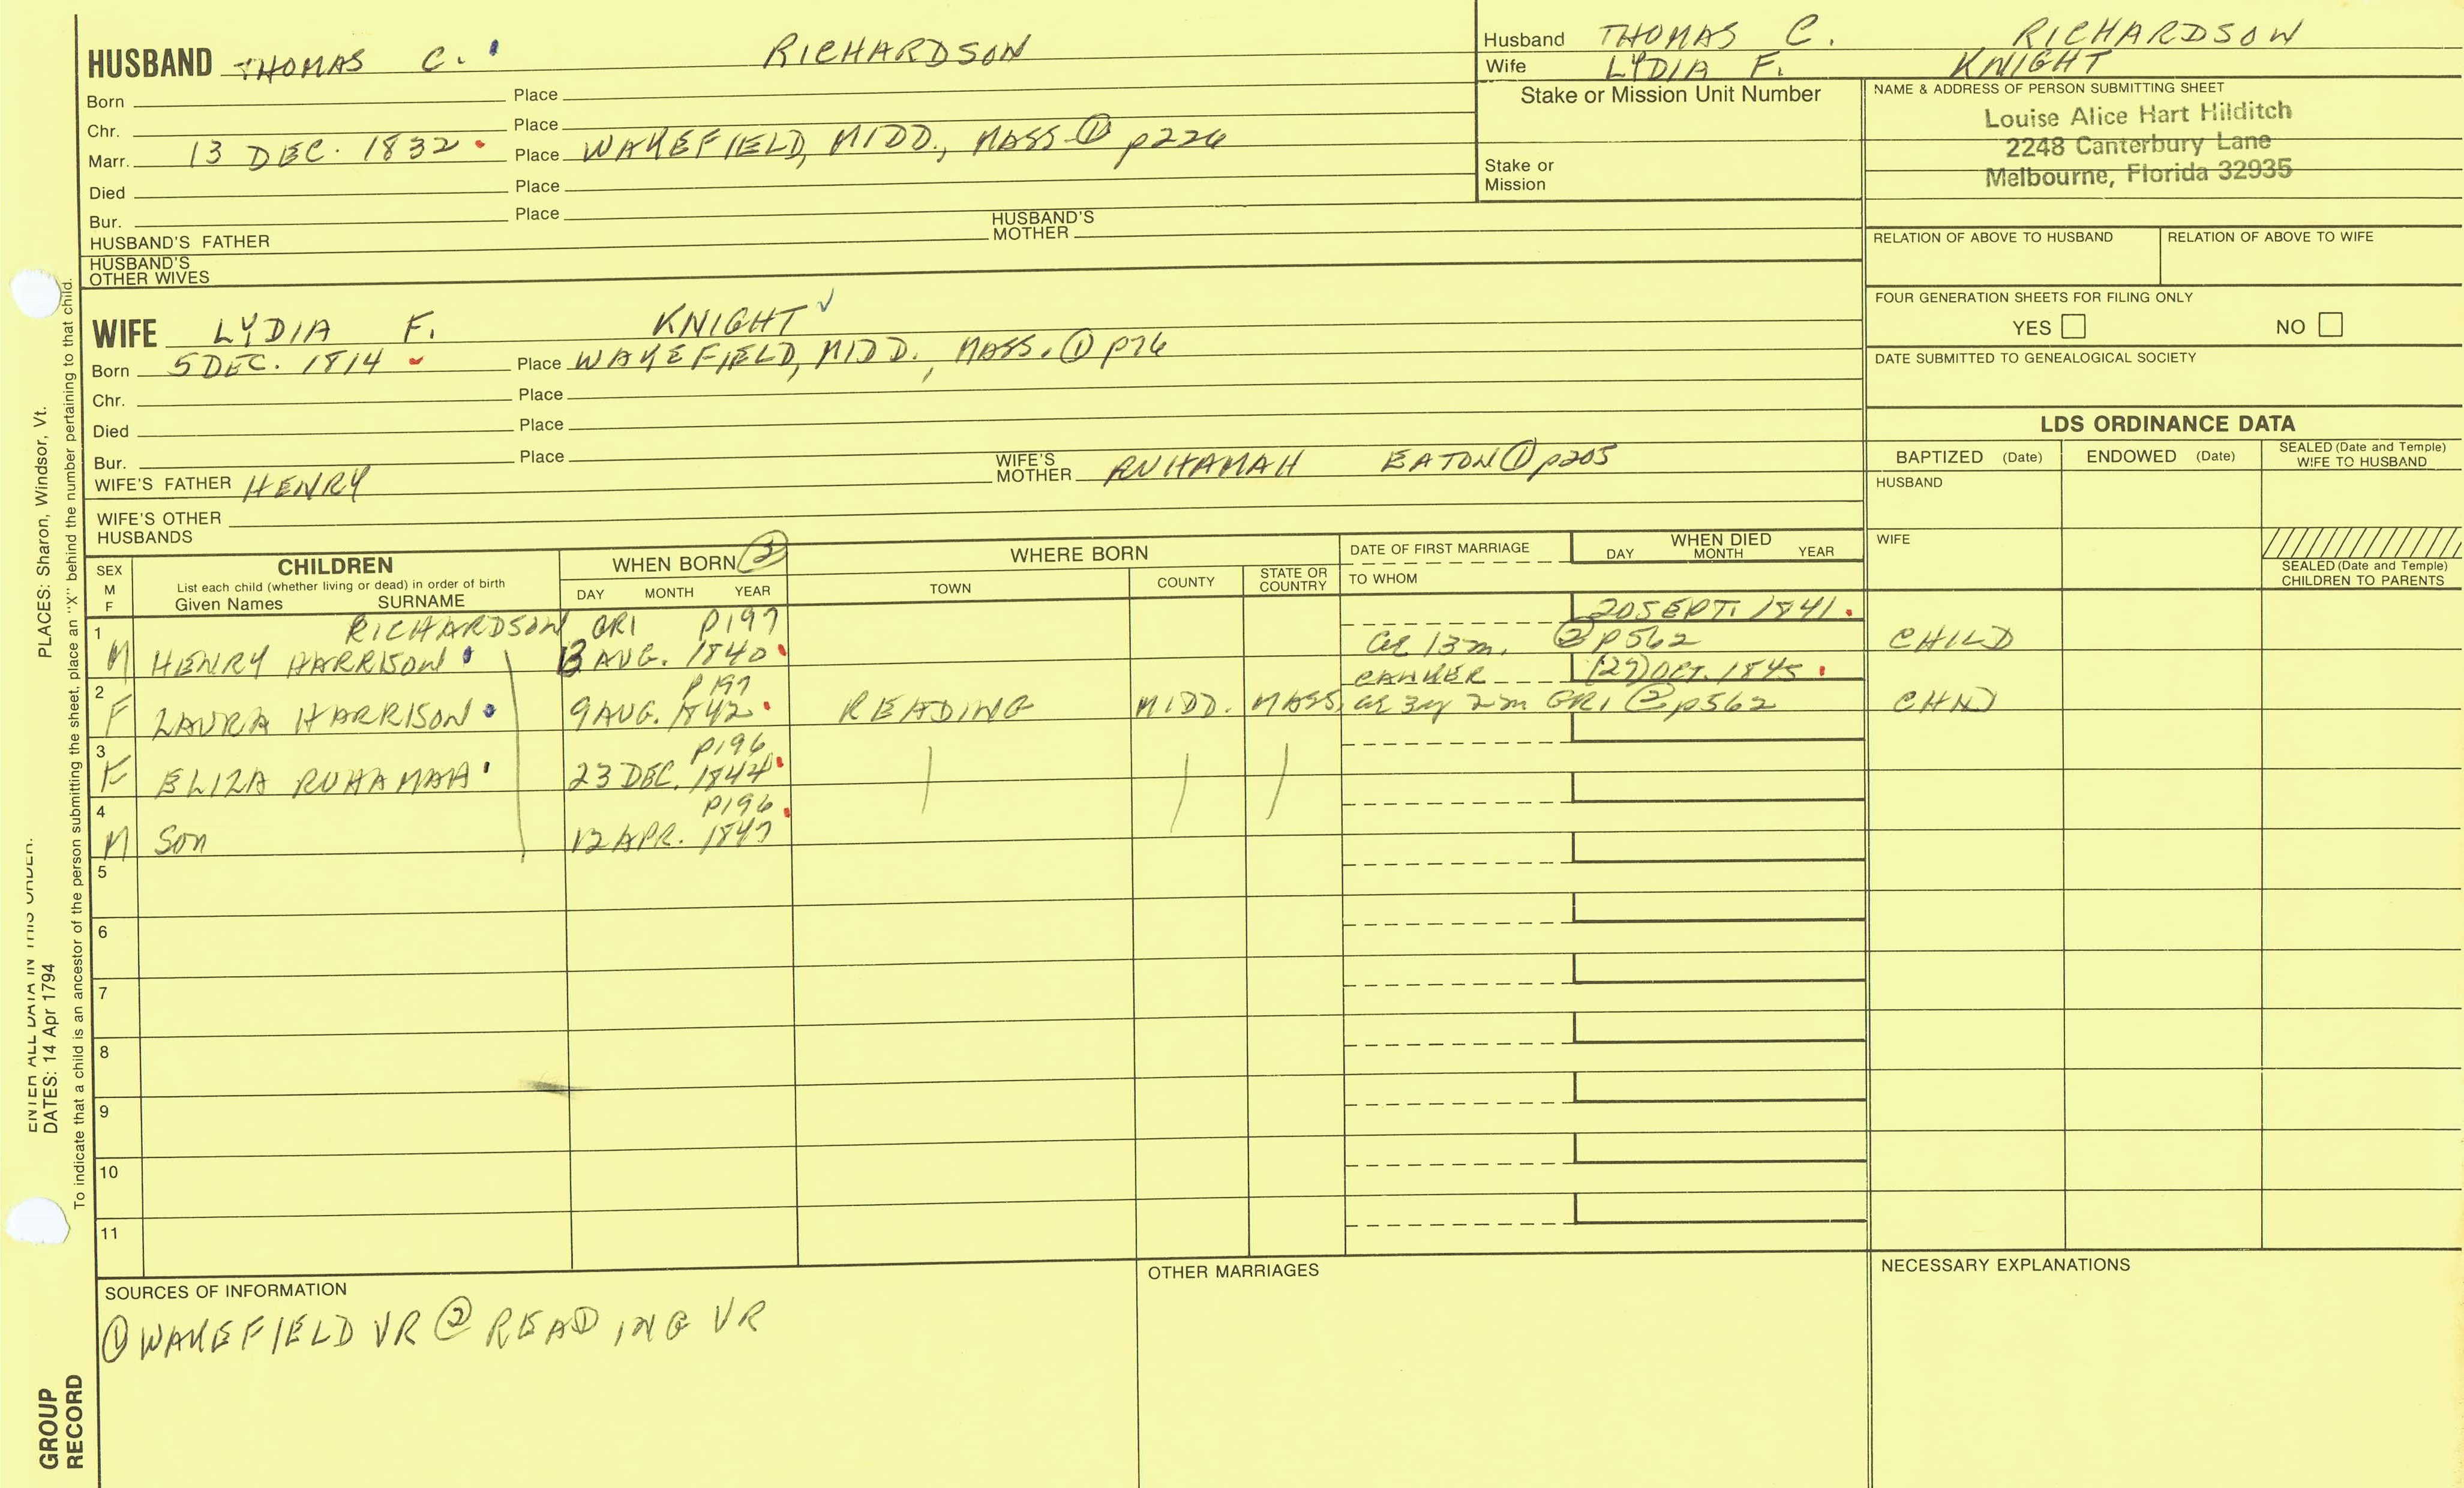 HUSBAND THOMAS C. RICHARDSON
Born Place
Chr. Place
Marr. 13 DEC. 1832 Place WAKEFIELD, MIDD., MASS ① p226
Died Place
Bur. Place
HUSBAND'S FATHER HUSBAND'S MOTHER
HUSBAND'S OTHER WIVES
Husband THOMAS C. RICHARDSON
Wife LYDIA F. KNIGHT
Stake or Mission Unit Number
Stake or Mission
NAME & ADDRESS OF PERSON SUBMITTING SHEET
Louise Alice Hart Hilditch
2248 Canterbury Lane
Melbourne, Florida 32935
RELATION OF ABOVE TO HUSBAND RELATION OF ABOVE TO WIFE
FOUR GENERATION SHEETS FOR FILING ONLY
YES NO
DATE SUBMITTED TO GENEALOGICAL SOCIETY
WIFE LYDIA F. KNIGHT ✓
Born 5 DEC. 1814 Place WAKEFIELD, MIDD., MASS. ① p76
Chr. Place
Died Place
Bur. Place
WIFE'S FATHER HENRY WIFE'S MOTHER RUHAMAH EATON ① p205
WIFE'S OTHER HUSBANDS
LDS ORDINANCE DATA
BAPTIZED (Date) ENDOWED (Date) SEALED (Date and Temple) WIFE TO HUSBAND
HUSBAND
WIFE
SEALED (Date and Temple) CHILDREN TO PARENTS
SEX M F
CHILDREN
List each child (whether living or dead) in order of birth
Given Names SURNAME
WHEN BORN ②
DAY MONTH YEAR
WHERE BORN
TOWN COUNTY STATE OR COUNTRY
DATE OF FIRST MARRIAGE
TO WHOM
WHEN DIED
DAY MONTH YEAR
1 RICHARDSON GR1 P197 20 SEPT. 1841
M HENRY HARRISON 13 AUG. 1840 ae 13m. ② P562 CHILD
2 P197 CANKER (27) OCT. 1845
F LAURA HARRISON 9 AUG. 1842 READING MIDD. MASS. ae 3y 2m GR1 ② p562 CHILD
3 P196
F ELIZA RUHAMAH 23 DEC. 1844
4 P196
M Son 12 APR. 1847
5
6
7
8
9
10
11
SOURCES OF INFORMATION
① WAKEFIELD VR ② READING VR
OTHER MARRIAGES
NECESSARY EXPLANATIONS
PLACES: Sharon, Windsor, Vt.
ENTER ALL DATA IN THIS ORDER:
DATES: 14 Apr 1794
To indicate that a child is an ancestor of the person submitting the sheet, place an "X" behind the number pertaining to that child.
GROUP
RECORD